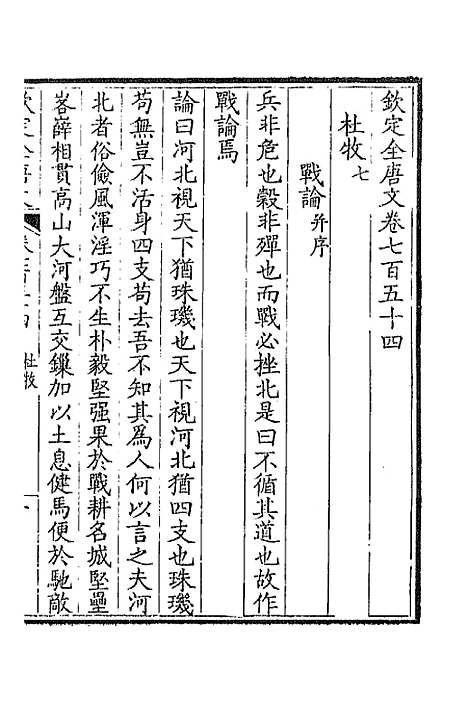 欽定全唐文卷七百五十四
杜牧七
戰論并序
兵非危也穀非殫也而戰必挫北是曰不循其道也故作
戰論焉
論曰河北視天下猶珠璣也天下視河北猶四支也珠璣
苟無豈不活身四支苟去吾不知其為人何以言之夫河
北者俗儉風渾淫巧不生朴毅堅强果於戰耕名城堅壘
峉嶭相貫高山大河盤互交鏁加以土息健馬便於馳敵
欽定全唐文 卷七百五十四 杜牧 一